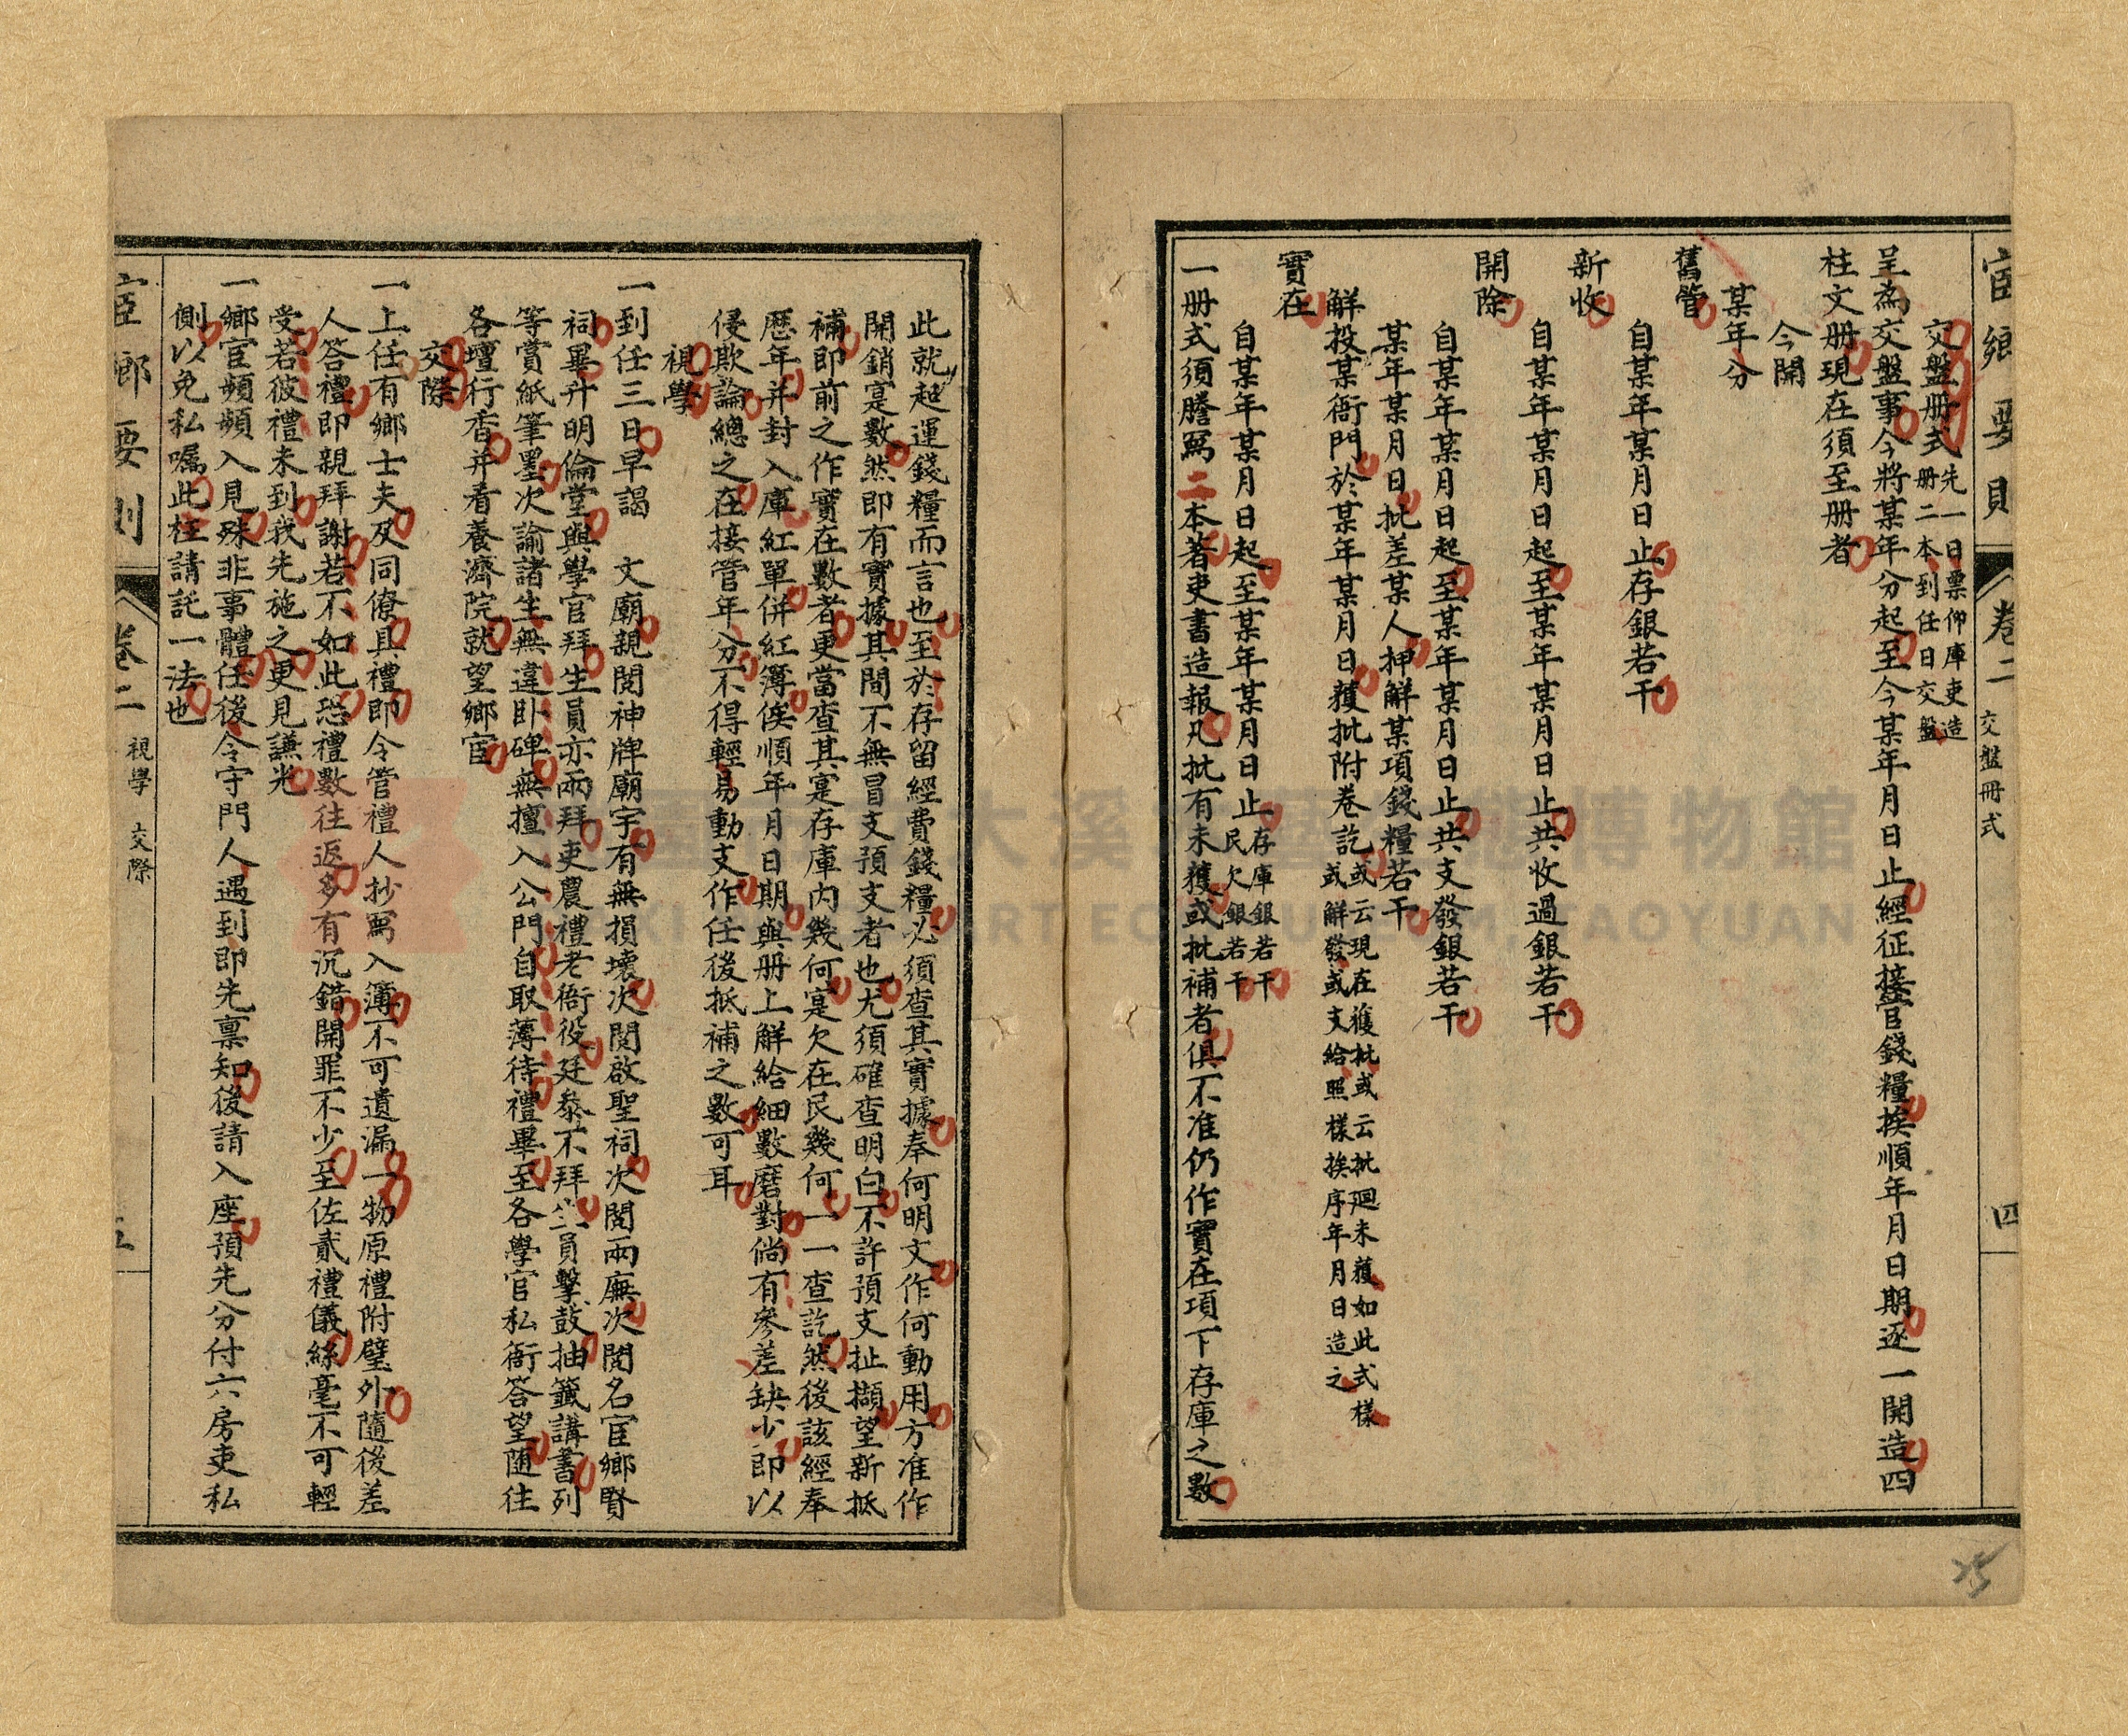 宦鄉要則 卷二 交盤冊式 四
交盤册式 先一日票仰庫吏造
册二本到任日交盤
呈為交盤事今將某年分起至今某年月日止經征接管錢糧挨順年月日期逐一開造四
柱文册現在須至册者
今開
某年分
舊管
自某年某月日止存銀若干
新收
自某年某月日起至某年某月日止共收過銀若干
開除
自某年某月日起至某年某月日止共支發銀若干
某年某月日批差某人押解某項錢糧若干
解投某衙門於某年某月日獲批附卷訖 或云現在獲批或云批廻未獲如此式樣
或解發或支給照樣挨序年月日造之
實在
自某年某月日起至某年某月日止 存庫銀若干
民欠銀若干
一册式須謄寫二本著吏書造報凡批有未獲或批補者俱不准仍作實在項下存庫之數
此就起運錢糧而言也至於存留經費錢糧必須查其實據奉何明文作何動用方准作
開銷寔數然即有實據其間不無冒支預支者也尤須確查明白不許預支扯擷望新抵
補即前之作實在數者更當查其寔存庫內幾何寔欠在民幾何一一查訖然後該經奉
歷年并封入庫紅單併紅簿俟順年月日期與册上解給細數磨對倘有參差缺少即以
侵欺論總之在接管年分不得輕易動支作任後抵補之數可耳
視學
一到任三日早謁 文廟親閱神牌廟宇有無損壞次閱啟聖祠次閱兩廡次閱名宦鄉賢
祠畢升明倫堂與學官拜生員亦兩拜吏農禮老衙役廷參不拜生員擊鼓抽籤講書列
等賞紙筆墨次諭諸生無違卧碑無擅入公門自取薄待禮畢至各學官私衙答望随往
各壇行香并看養濟院就望鄉宦
交際
一上任有鄉士夫及同僚具禮即令管禮人抄寫入簿不可遺漏一物原禮附璧外隨後差
人答禮即親拜謝若不如此恐禮數往返多有沉錯開罪不少至佐貳禮儀絲毫不可輕
受若彼禮未到我先施之更見謙光
一鄉宦頻頻入見殊非事體任後令守門人遇到即先禀知後請入座預先分付六房吏私
側以免私囑此枉請託一法也
宦鄉要則 卷二 視學 交際 五
桃園市立大溪木藝生態博物館
DAXI WOOD ART ECOMUSEUM, TAOYUAN
25